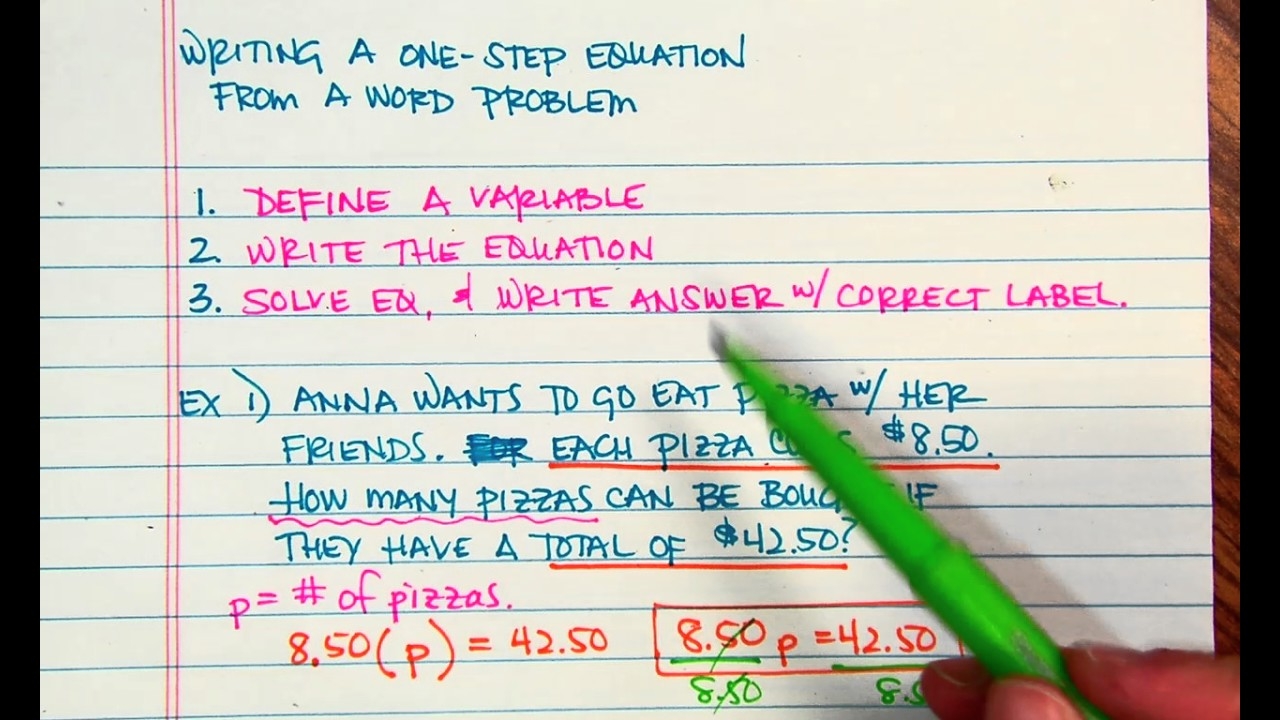 WRITING A ONE-STEP EQUATION
FROM A WORD PROBLEM
1. DEFINE A VARIABLE
2. WRITE THE EQUATION
3. SOLVE EQ, & WRITE ANSWER W/ CORRECT LABEL.
EX 1) ANNA WANTS TO GO EAT PIZZA W/ HER
FRIENDS. EACH PIZZA $8.50.
HOW MANY PIZZAS CAN BE IF
THEY HAVE A TOTAL OF $42.50?
p = # of pizzas.
8.50(p) = 42.50 8.50 p = 42.50
8.50